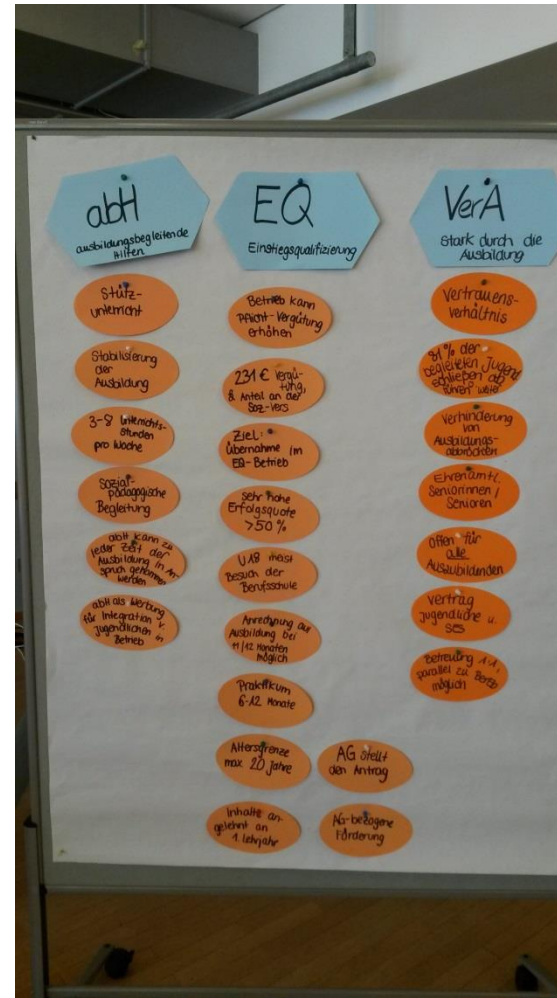 abH
ausbildungsbegleitende
Hilfen
Stütz-
unterricht
Stabilisierung
der
Ausbildung
3-8 Unterrichts-
stunden
pro Woche
Sozial-
pädagogische
Begleitung
abH kann zu
jeder Zeit der
Ausbildung in An-
spruch genommen
werden
abH als Werbung
für Integration v.
Jugendlichen in
Betrieb
EQ
Einstiegsqualifizierung
Betrieb kann
Pflicht-Vergütung
erhöhen
231 € Vergü-
tung,
& Anteil an der
Soz-Vers
Ziel:
Übernahme im
EQ-Betrieb
sehr hohe
Erfolgsquote
>50 %
U18 meist
Besuch der
Berufsschule
Anrechnung auf
Ausbildung bei
11/12 Monaten
möglich
Praktikum
6-12 Monate
Altersgrenze
max. 20 Jahre
AG stellt
den Antrag
Inhalte an-
gelehnt an
1. Lehrjahr
AG-bezogene
Förderung
VerA
Stark durch die
Ausbildung
Vertrauens-
verhältnis
81% der
begleiteten Jugend
schließen ab
führen weiter
Verhinderung
von
Ausbildungs-
abbrüchen
Ehrenamtl.
Seniorinnen /
Senioren
Offen für
alle
Auszubildenden
Vertrag
Jugendliche u.
SES
Betreuung 1:1,
parallel zu Beruf
möglich